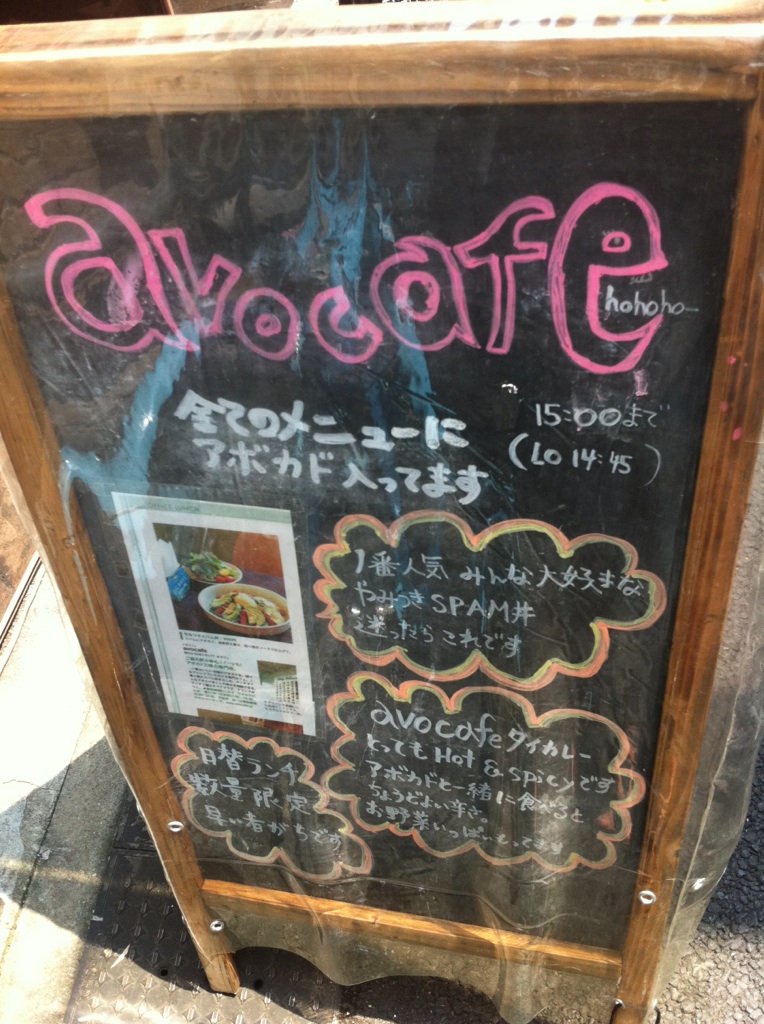 avocafe
hohoho
全てのメニューに
アボカド入ってます
15:00まで
(LO 14:45)
1番人気 みんな大好きな
やみつきSPAM丼
迷ったら これです
avocafe
日替ランチ
数量限定
早い者がちです
avocafe タイカレー
とっても Hot & Spicyです
アボカドと一緒に食べると
ちょうどよい辛さ。
お野菜いっぱいもってます